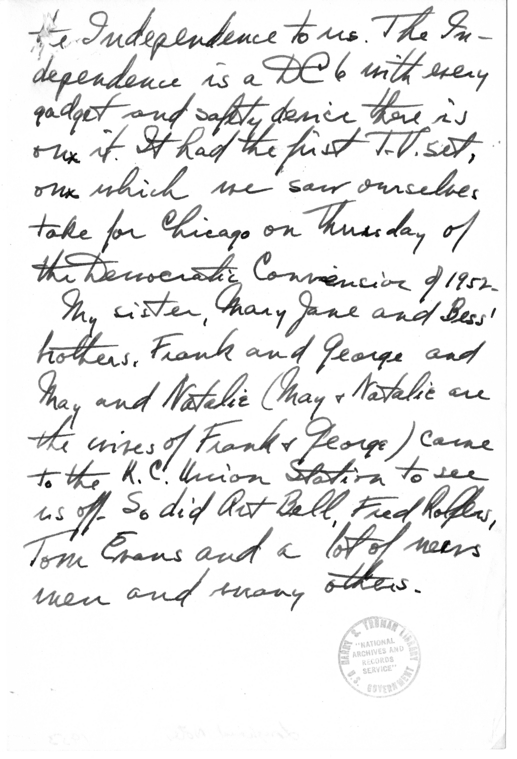 the Independence to us. The In-
dependence is a DC6 with every
gadget and safety device there is
on it. It had the first T.V. set,
on which we saw ourselves
take for Chicago on Thursday of
the Democratic Convension of 1952-
My sister, Mary Jane and Bess'
brothers, Frank and George and
May and Natalie (May & Natalie are
the wives of Frank & George) came
to the K.C. Union Station to see
us off. So did Art Bell, Fred
Tom Evans and a lot of news
men and many others.
HARRY S. TRUMAN LIBRARY
"NATIONAL
ARCHIVES AND
RECORDS
SERVICE"
U.S. GOVERNMENT